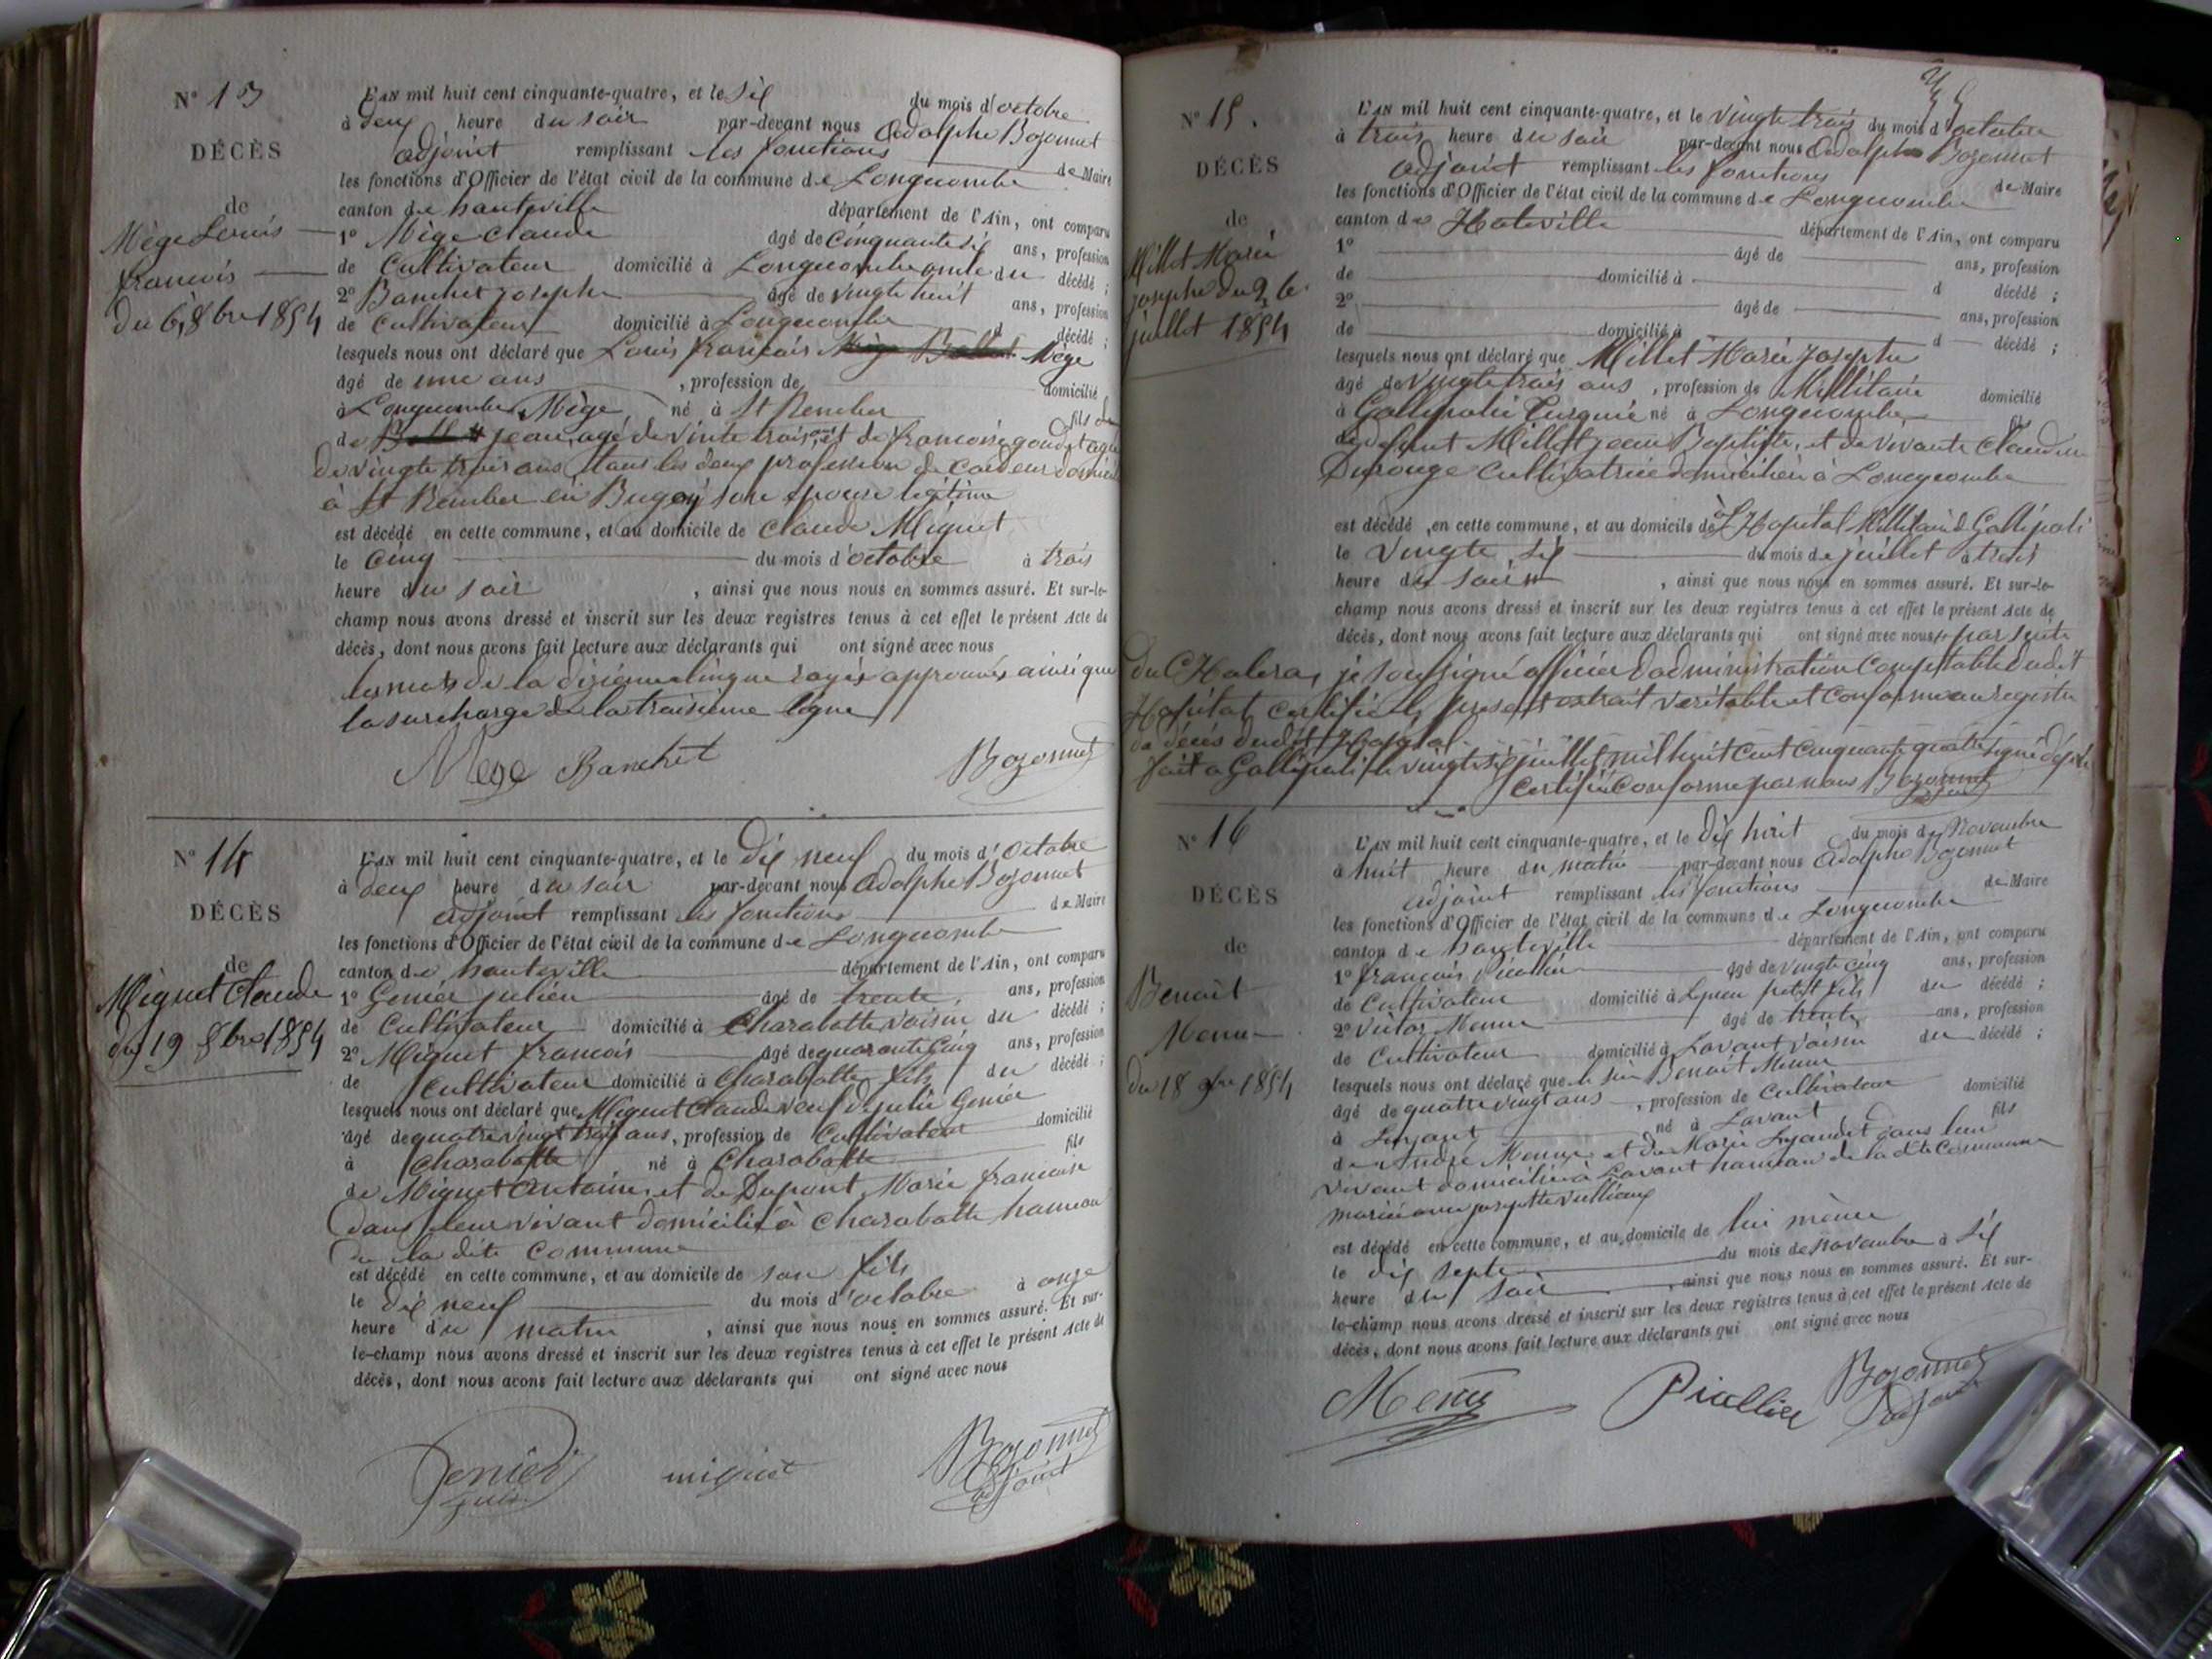 N° 13
DÉCÈS
de
Mège Louis
francois
du 6, 8bre 1854
L'AN mil huit cent cinquante-quatre, et le six du mois d'octobre
à deux heure du soir par-devant nous Adolphe Bozonnet
adjoint remplissant les fonctions de Maire
les fonctions d'Officier de l'état civil de la commune de Longecombe
canton de hauteville département de l'Ain, ont comparu
1° Mège Claude âgé de Cinquante six ans, profession
de Cultivateur domicilié à Longecombe oncle du décédé ;
2° Banchet joseph âgé de vingt huit ans, profession
de Cultivateur domicilié à Longecombe d décédé ;
lesquels nous ont déclaré que Louis francois Mège
âgé de une ans , profession de domicilié
à Longecombe Mège né à St Rember fils
de jean, agé de vinte trois ans et de francoise goudet agée
de vingte trois ans tous les deux profession de Cardeur
à St Rember en Bugey son epouse legitime
est décédé en cette commune, et au domicile de Claude Miguet
le Cinq du mois d'octobre à trois
heure du soir , ainsi que nous nous en sommes assuré. Et sur-le-
champ nous avons dressé et inscrit sur les deux registres tenus à cet effet le présent Acte de
décès, dont nous avons fait lecture aux déclarants qui ont signé avec nous
les mots de la dizieme lingne rayés approuvés ainsi que
la surcharge de la traisieme ligne
Mege Banchet Bozonnet
N° 14
DÉCÈS
de
Miguet Claude
du 19 8bre 1854
L'AN mil huit cent cinquante-quatre, et le dix neuf du mois d'octobre
à deux heure du soir par-devant nous Adolphe Bozonnet
adjoint remplissant les fonctions de Maire
les fonctions d'Officier de l'état civil de la commune de Longecombe
canton de hauteville département de l'Ain, ont comparu
1° Genier julien âgé de trente ans, profession
de Cultivateur domicilié à Charabotte voisin du décédé ;
2° Miguet francois âgé de quarante Cinq ans, profession
de Cultivateur domicilié à Charabotte fils du décédé ;
lesquels nous ont déclaré que Miguet Claude veuf de julie Genier
âgé de quatre vingt trois ans, profession de Cultivateur domicilié
à Charabotte né à Charabotte fils
de Miguet Antoine, et de Dupont Marie francoise
dans leur vivant domicilié à Charabotte hameau
de la dite Commune
est décédé en cette commune, et au domicile de son fils
le dix neuf du mois d'octobre à onze
heure du matin , ainsi que nous nous en sommes assuré. Et sur-
le-champ nous avons dressé et inscrit sur les deux registres tenus à cet effet le présent Acte de
décès, dont nous avons fait lecture aux déclarants qui ont signé avec nous
miguet Bozonnet
adjoint
N° 15.
DÉCÈS
de
Millet Marie
josephe du 26
juillet 1854
L'AN mil huit cent cinquante-quatre, et le vingte trois du mois d'octobre
à trois heure du soir par-devant nous Adolphe Bozonnet
adjoint remplissant les fonctions de Maire
les fonctions d'Officier de l'état civil de la commune de Longecombe
canton de Hateville département de l'Ain, ont comparu
1° âgé de ans, profession
de domicilié à d décédé ;
2° âgé de ans, profession
de domicilié à d décédé ;
lesquels nous ont déclaré que Millet Marie Josephe
âgé de vingte trois ans , profession de Millitaire domicilié
à Gallipolie Turquie né à Longecombe fils
de defunt Millet jean Baptiste, et de vivante Claudine
Durouge Cultivatrice domiciliée à Longecombe
est décédé en cette commune, et au domicile de à L'Hopital Millitaire d Gallipoli
le vingte six du mois de juillet à trois
heure du soir , ainsi que nous nous en sommes assuré. Et sur-le-
champ nous avons dressé et inscrit sur les deux registres tenus à cet effet le présent Acte de
décès, dont nous avons fait lecture aux déclarants qui ont signé avec nous par suite
du CHolera, je soussigné officier d'administration Comptable dudit
Hopital certifie le present extrait veritable et conforme au registre
de décés dudit Hopital.
fait a Gallipoli le vingt six juillet mil huit cent cinquante quatre signé
Certifié Conforme par nous Bozonnet
N° 16
DÉCÈS
de
Benoit
Mermet
du 18 9bre 1854
L'AN mil huit cent cinquante-quatre, et le dix huit du mois de Novembre
à huit heure du matin par-devant nous Adolphe Bozonnet
adjoint remplissant les fonctions de Maire
les fonctions d'Officier de l'état civil de la commune de Longecombe
canton de hauteville département de l'Ain, ont comparu
1° francois âgé de vingt cinq ans, profession
de Cultivateur domicilié à petit fils du décédé ;
2° Victor âgé de trente ans, profession
de Cultivateur domicilié à Lavant voisin du décédé ;
lesquels nous ont déclaré que le sieur Benoit
âgé de quatre vingt ans , profession de Cultivateur domicilié
à né à Lavant fils
de André et de Marie dans leur
vivant domicilié à Lavant hameau de la dite Commune
marié avec josephte
est décédé en cette commune, et au domicile de lui même
le dix sept du mois de novembre à six
heure du soir , ainsi que nous nous en sommes assuré. Et sur-
le-champ nous avons dressé et inscrit sur les deux registres tenus à cet effet le présent Acte de
décès, dont nous avons fait lecture aux déclarants qui ont signé avec nous
Bozonnet
adjoint